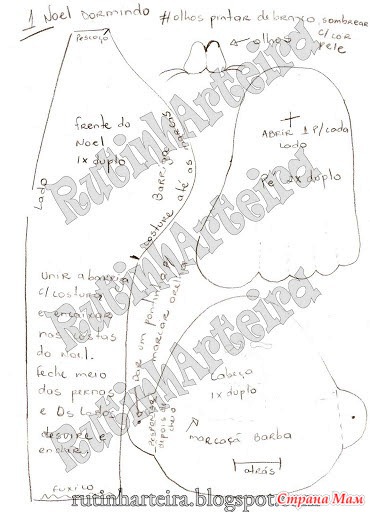 1 Noel Dormindo
#olhos pintar de branco, sombrear
c/ cor
pele
Pescoço
olhos
frente do
Noel
1x duplo
Lado
Barriga
Costure até as
ABRIR 1 P/ cada
lado
Pé 2x duplo
unir a barriga
c/ costura
e encaixar
nas costas
do Noel.
feche meio
das pernas
e os lados
desvire e
encher.
fuxico
Dar um pontinho
marcar orelha
depois de
cheio
Cabeça
1x duplo
marcação Barba
atrás
RutinhArteira
RutinhArteira
RutinhArteira
RutinhArteira
RutinhArteira
rutinharteira.blogspot.com
Страна Мам